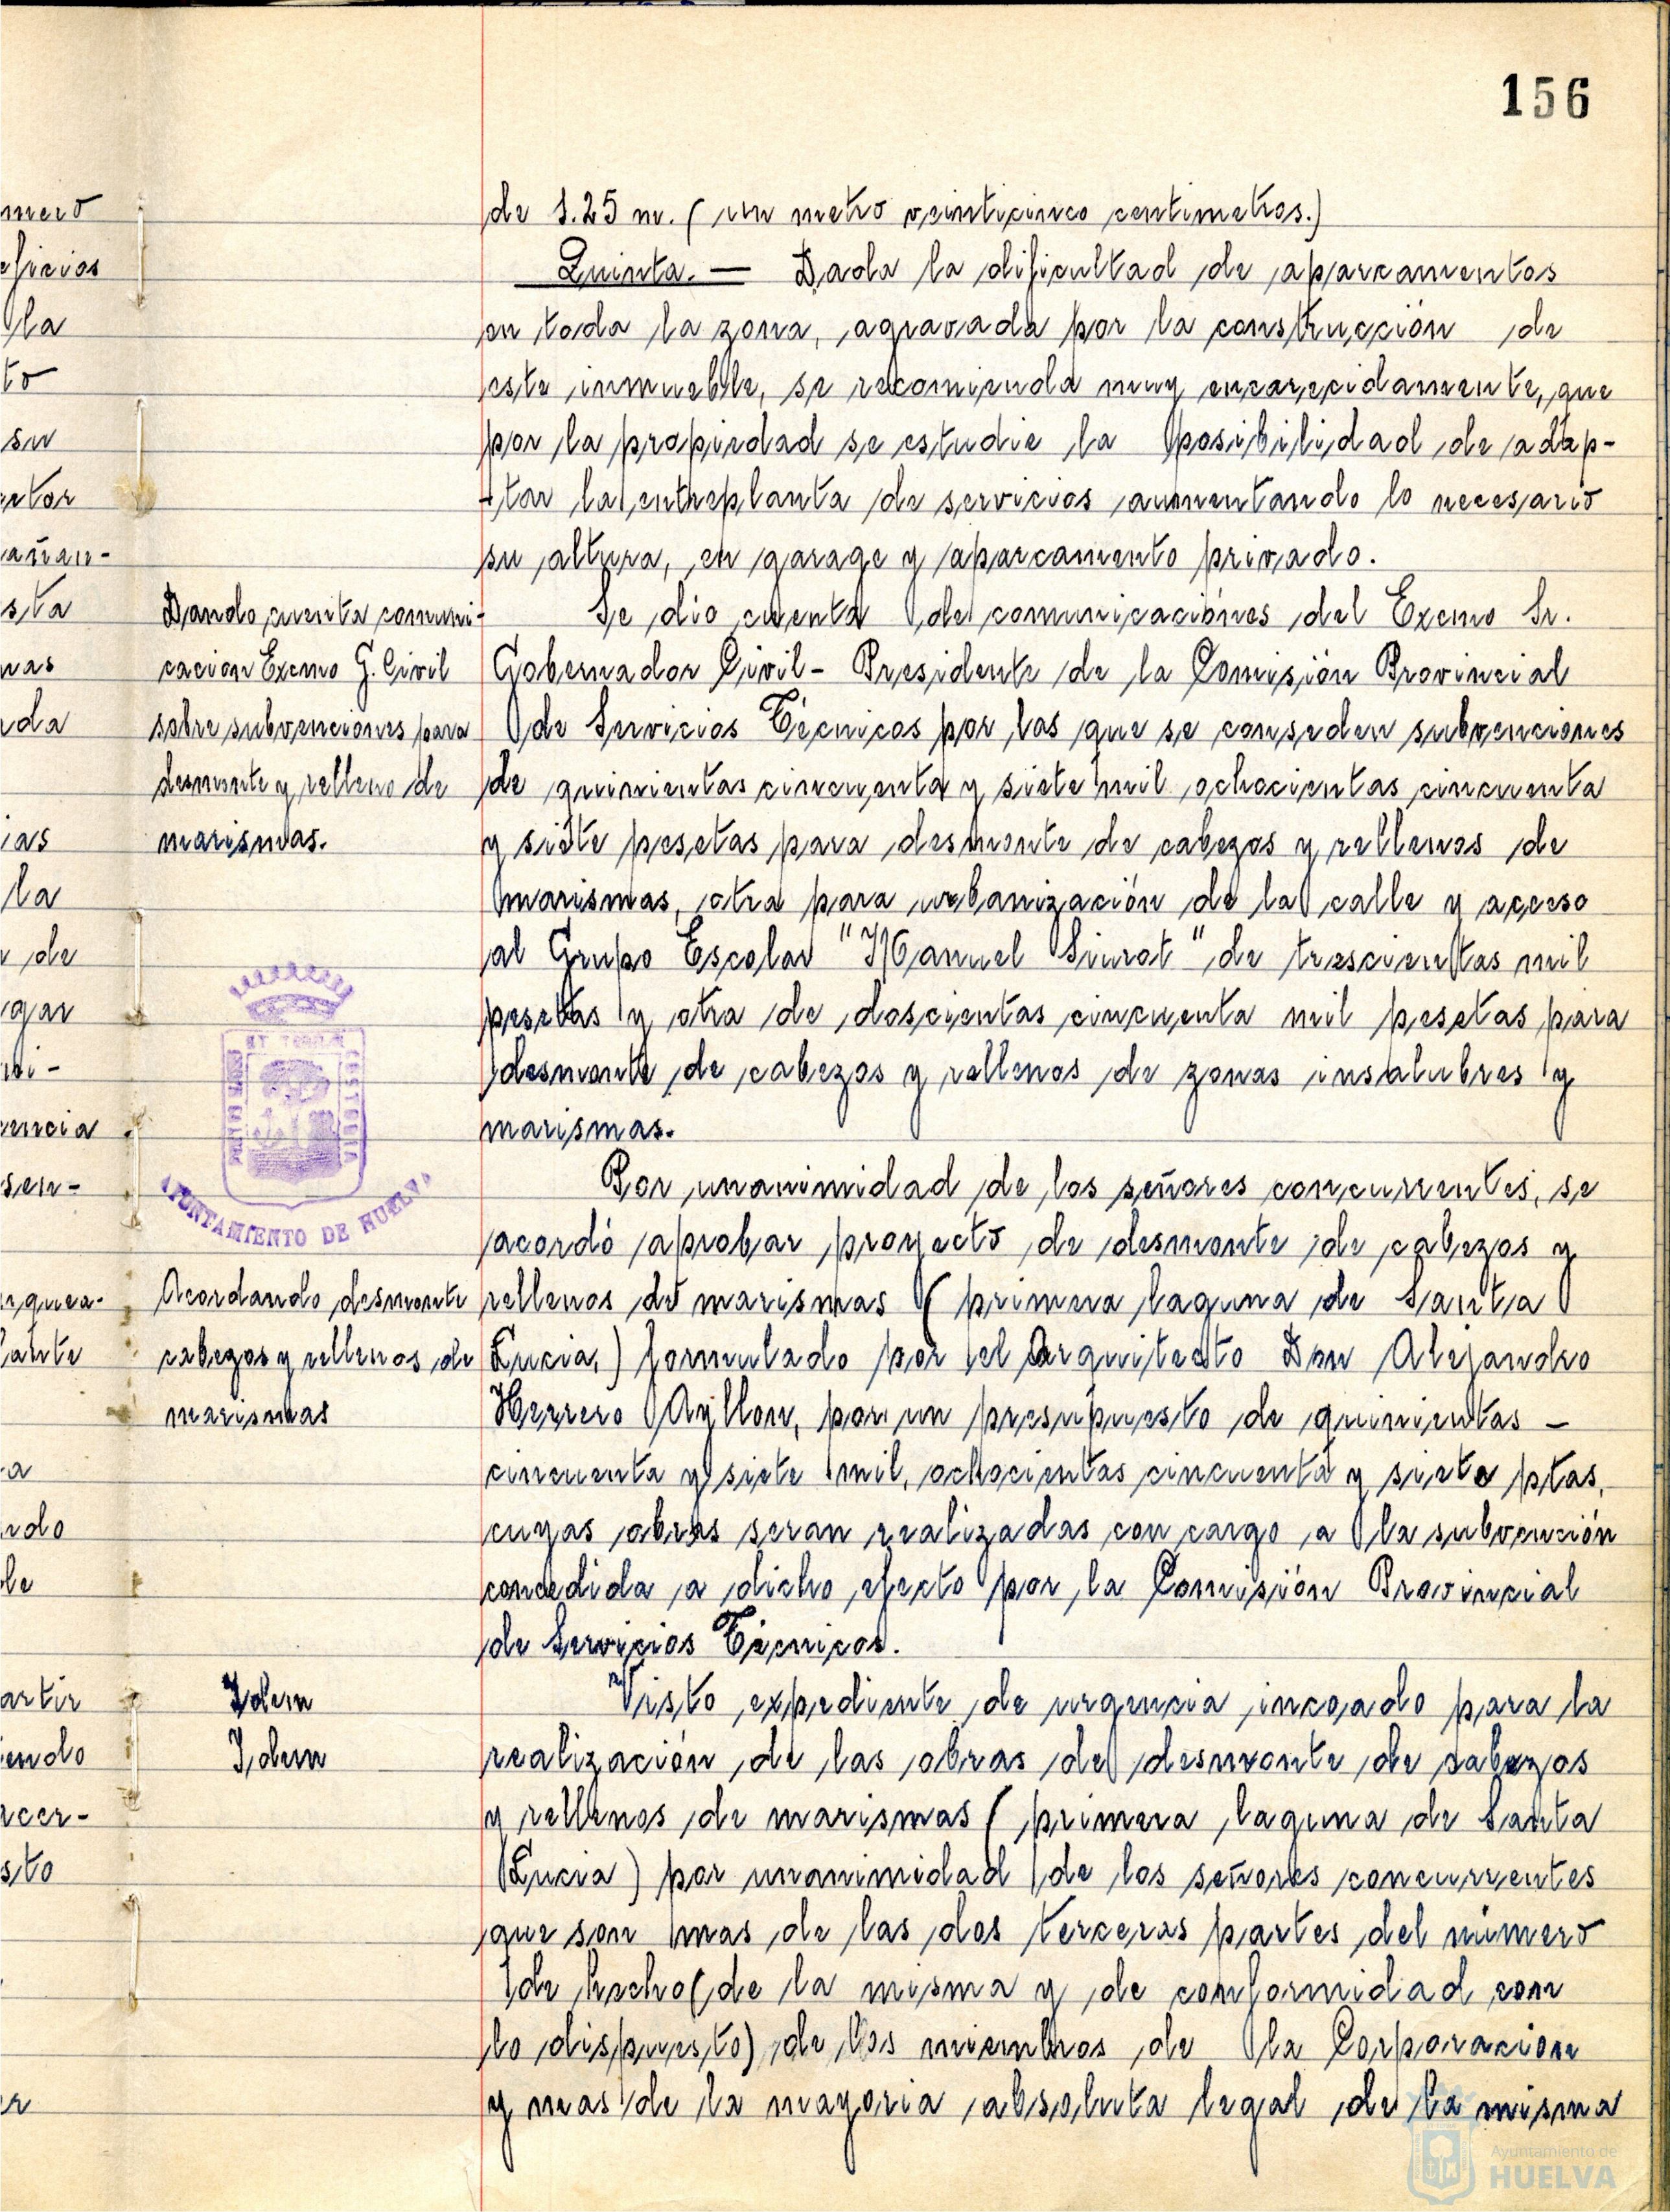 156
de 1.25 m. ( un metro veinticinco centimetros.)
Quinta. — Dada la dificultad de aparcamentos
en toda la zona, agravada por la construcción de
este inmueble, se recomienda muy encarecidamente, que
por la propiedad se estudie la posibilidad de adap-
tar la entreplanta de servicios aumentando lo necesario
su altura, en garage y aparcamento privado.
Dando cuenta comuni-
cacion Excmo G. Civil
sobre subvenciones para
desmonte y relleno de
marismas.
Se dio cuenta de comunicaciónes del Excmo Sr.
Gobernador Civil- Presidente de la Comisión Provincial
de Servicios Técnicos por las que se conseden subvenciones
de quinientas cincuenta y siete mil ochocientas cincuenta
y siete pesetas para desmonte de cabezos y rellenos de
marismas, otra para urbanización de la calle y acceso
al Grupo Escolar "Manuel Siurot" de trescientas mil
pesetas y otra de doscientas cincuenta mil pesetas para
desmonte de cabezos y rellenos de zonas insalubres y
marismas.
AYUNTAMIENTO DE HUELVA
Por unanimidad de los señores concurrentes, se
acordó aprobar proyecto de desmonte de cabezos y
Acordando desmonte
cabezos y rellenos de
marismas
rellenos de marismas ( primera laguna de Santa
Lucia,) formulado por el Arquitecto Don Alejandro
Herrero Ayllon, por un presupuesto de quinientas -
cincuenta y siete mil, ochocientas cincuenta y siete ptas,
cuyas obras seran realizadas con cargo a la subvención
concedida a dicho efecto por la Comisión Provincial
de Servicios Técnicos.
Idem
Idem
Visto expediente de urgencia incoado para la
realización de las obras de desmonte de cabezos
y rellenos de marismas ( primera laguna de Santa
Lucia ) por unanimidad de los señores concurrentes
que son mas de las dos terceras partes del número
de hecho (de la misma y de conformidad con
lo dispuesto) de los miembros de la Corporacion
y mas de la mayoria absoluta legal de la misma
Ayuntamiento de
HUELVA